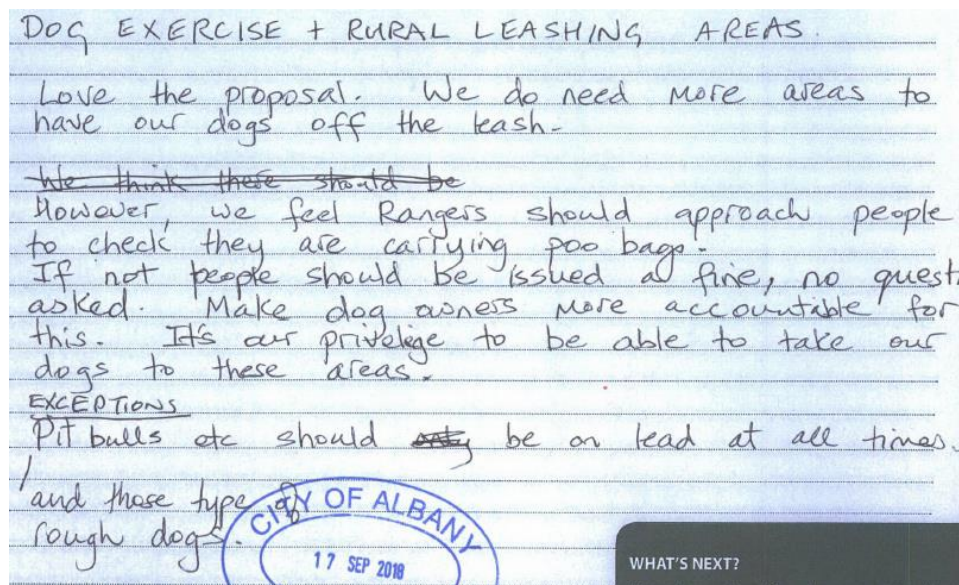 DOG EXERCISE + RURAL LEASHING AREAS.
Love the proposal. We do need more areas to
have our dogs off the leash.
We think there should be
However, we feel Rangers should approach people
to check they are carrying poo bags.
If not people should be issued a fine, no quest
asked. Make dog owners more accountable for
this. It's our privelige to be able to take our
dogs to these areas.
EXCEPTIONS
Pit bulls etc should only be on lead at all times.
and those type of
rough dogs.
CITY OF ALBANY
17 SEP 2018
WHAT'S NEXT?